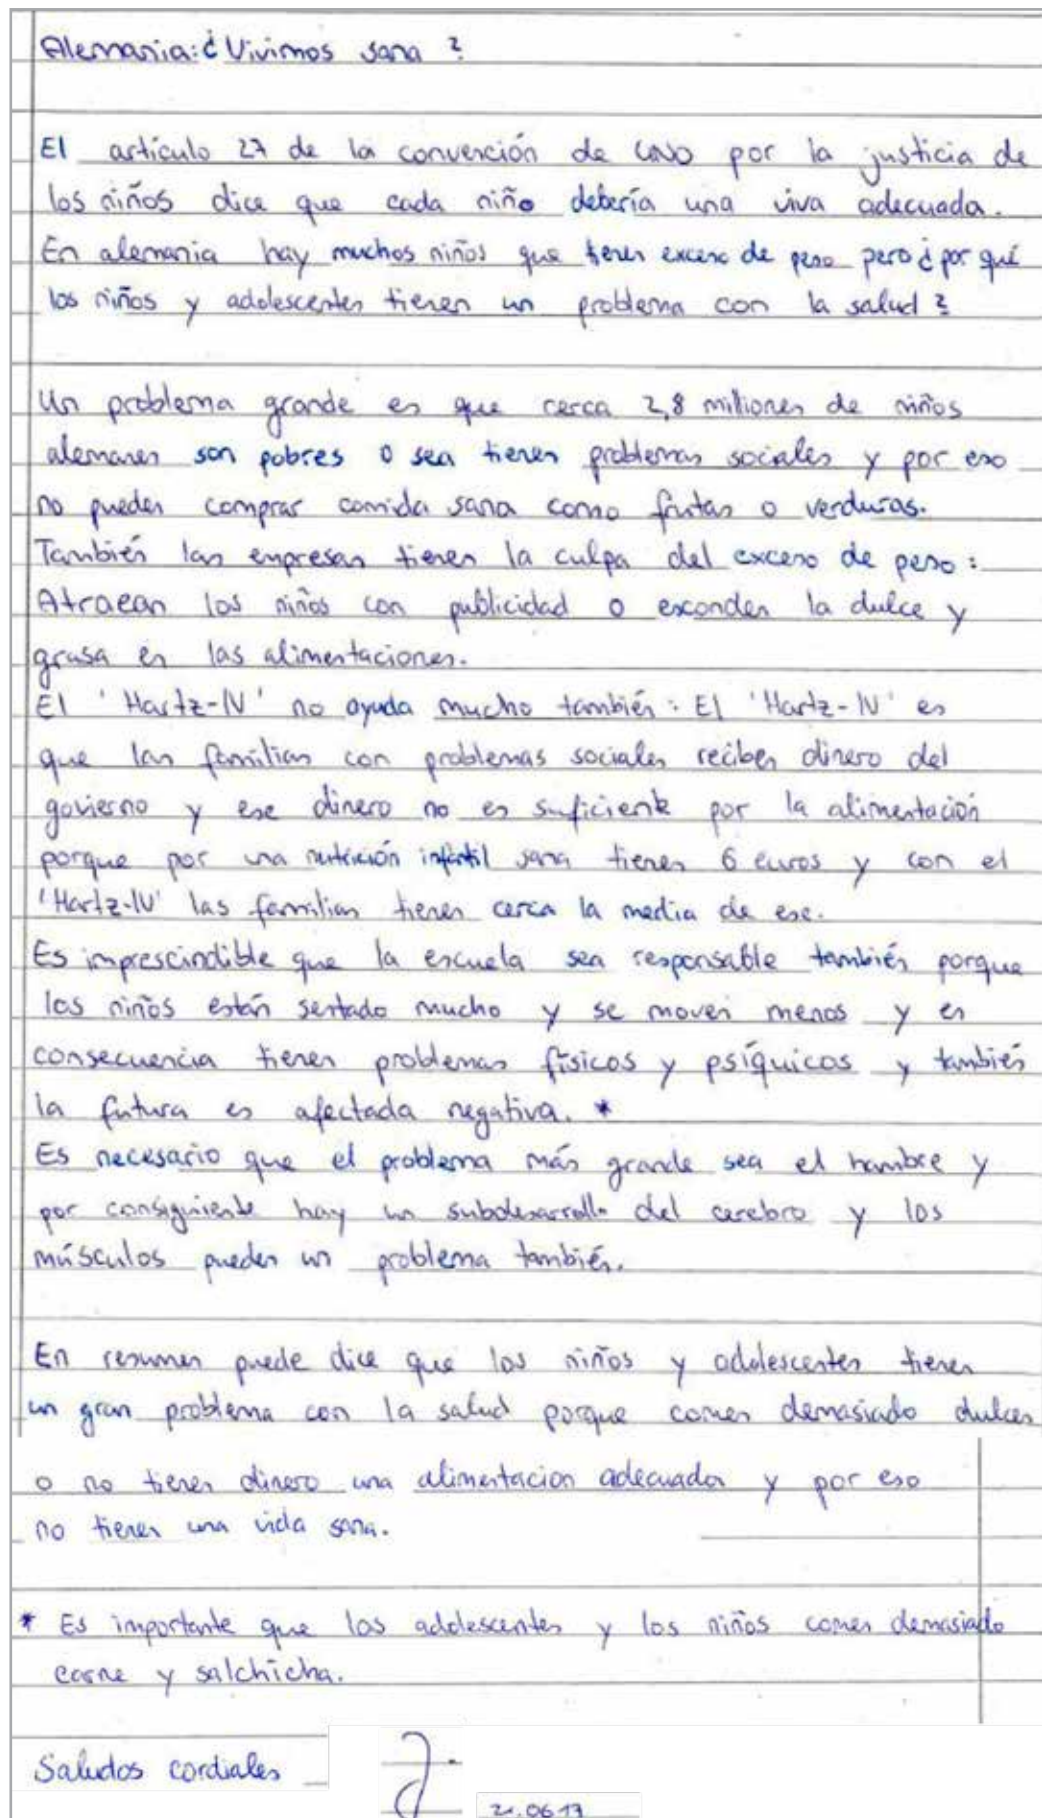 Alemania: ¿Vivimos sana?
El artículo 27 de la convención de UNO por la justicia de
los niños dice que cada niño debería una viva adecuada.
En alemania hay muchos niños que tienen exceso de peso pero ¿por qué
los niños y adolescentes tienen un problema con la salud?
Un problema grande es que cerca 2,8 milliones de niños
alemanes son pobres o sea tienen problemas sociales y por eso
no pueden comprar comida sana como frutas o verduras.
También las empresas tienen la culpa del exceso de peso:
Atraean los niños con publicidad o esconden la dulce y
grasa en las alimentaciones.
El 'Hartz-IV' no ayuda mucho también: El 'Hartz-IV' es
que las familias con problemas sociales reciben dinero del
govierno y ese dinero no es suficiente por la alimentación
porque por una nutrición infantil sana tienen 6 euros y con el
'Hartz-IV' las familias tienen cerca la media de ese.
Es imprescindible que la escuela sea responsable también porque
los niños están sentado mucho y se moven menos y en
consecuencia tienen problemas físicos y psíquicos y también
la futura es afectada negativa. *
Es necesario que el problema más grande sea el hambre y
por consiguiente hay un subdesarrollo del cerebro y los
músculos pueden un problema también.
En resumen puede dice que los niños y adolescentes tienen
un gran problema con la salud porque comen demasiado dulces
o no tienen dinero una alimentacion adecuada y por eso
no tienen una vida sana.
* Es importante que los adolescentes y los niños comen demasiado
carne y salchicha.
Saludos cordiales
21.06.17